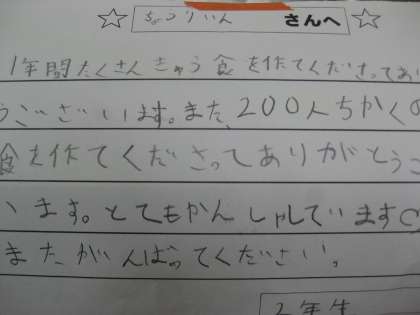 ☆ ちょうりいん さんへ ☆
1年間たくさんきゅう食を作てくださってあり
うございます。また、200人ちかくの
食を作てくださってありがとうご
います。とてもかんしゃしています
またがんばってください。
2年生